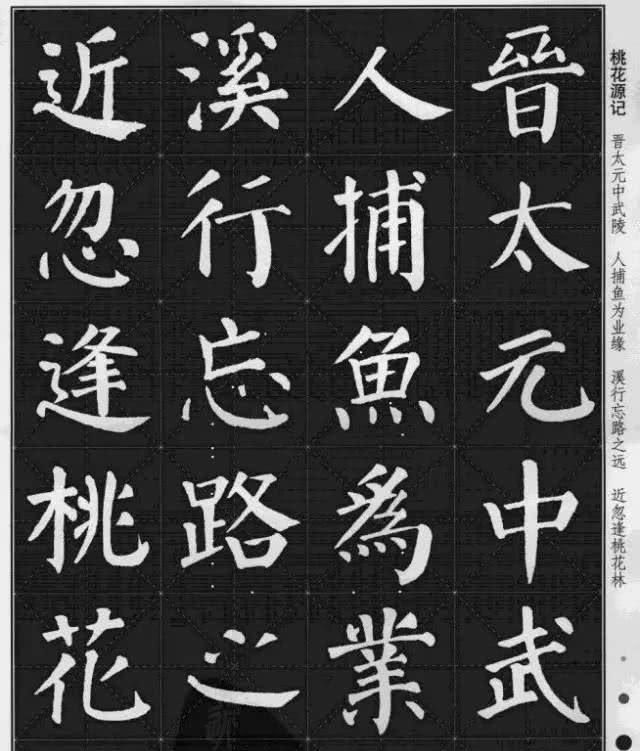 桃花源记 晋太元中武陵 人捕鱼为业缘 溪行忘路之远 近忽逢桃花林
晉太元中武
人捕魚爲業
溪行忘路之
近忽逢桃花